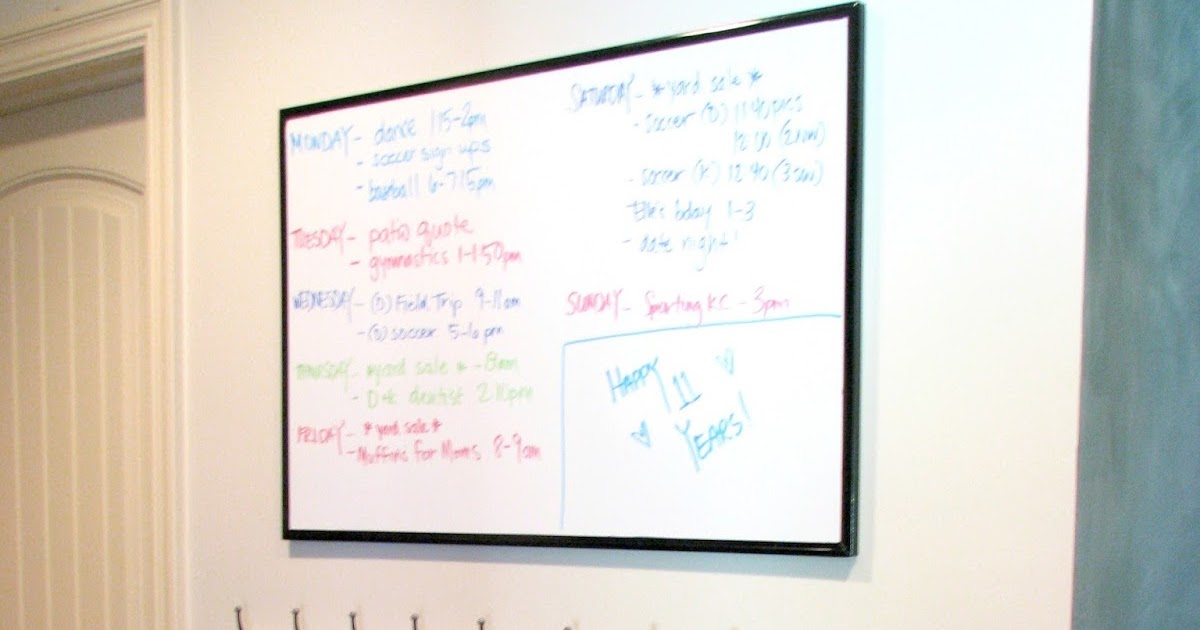 MONDAY - dance 1:15-2pm
- soccer sign ups
- baseball 6-7:15pm
TUESDAY - patio quote
- gymnastics 1-1:50pm
WEDNESDAY - (D) Field Trip 9-11am
- (D) soccer 5-6pm
THURSDAY - *yard sale* - 8am
- D+K dentist 2:10pm
FRIDAY - *yard sale*
- Muffins for Moms 8-9am
SATURDAY - *yard sale*
- soccer (D) 11:40 pics
12:00 (2NW)
- soccer (K) 12:40 (3SW)
bday 1-3
- date night!
SUNDAY - Sporting KC - 3pm
HAPPY
11
YEARS!